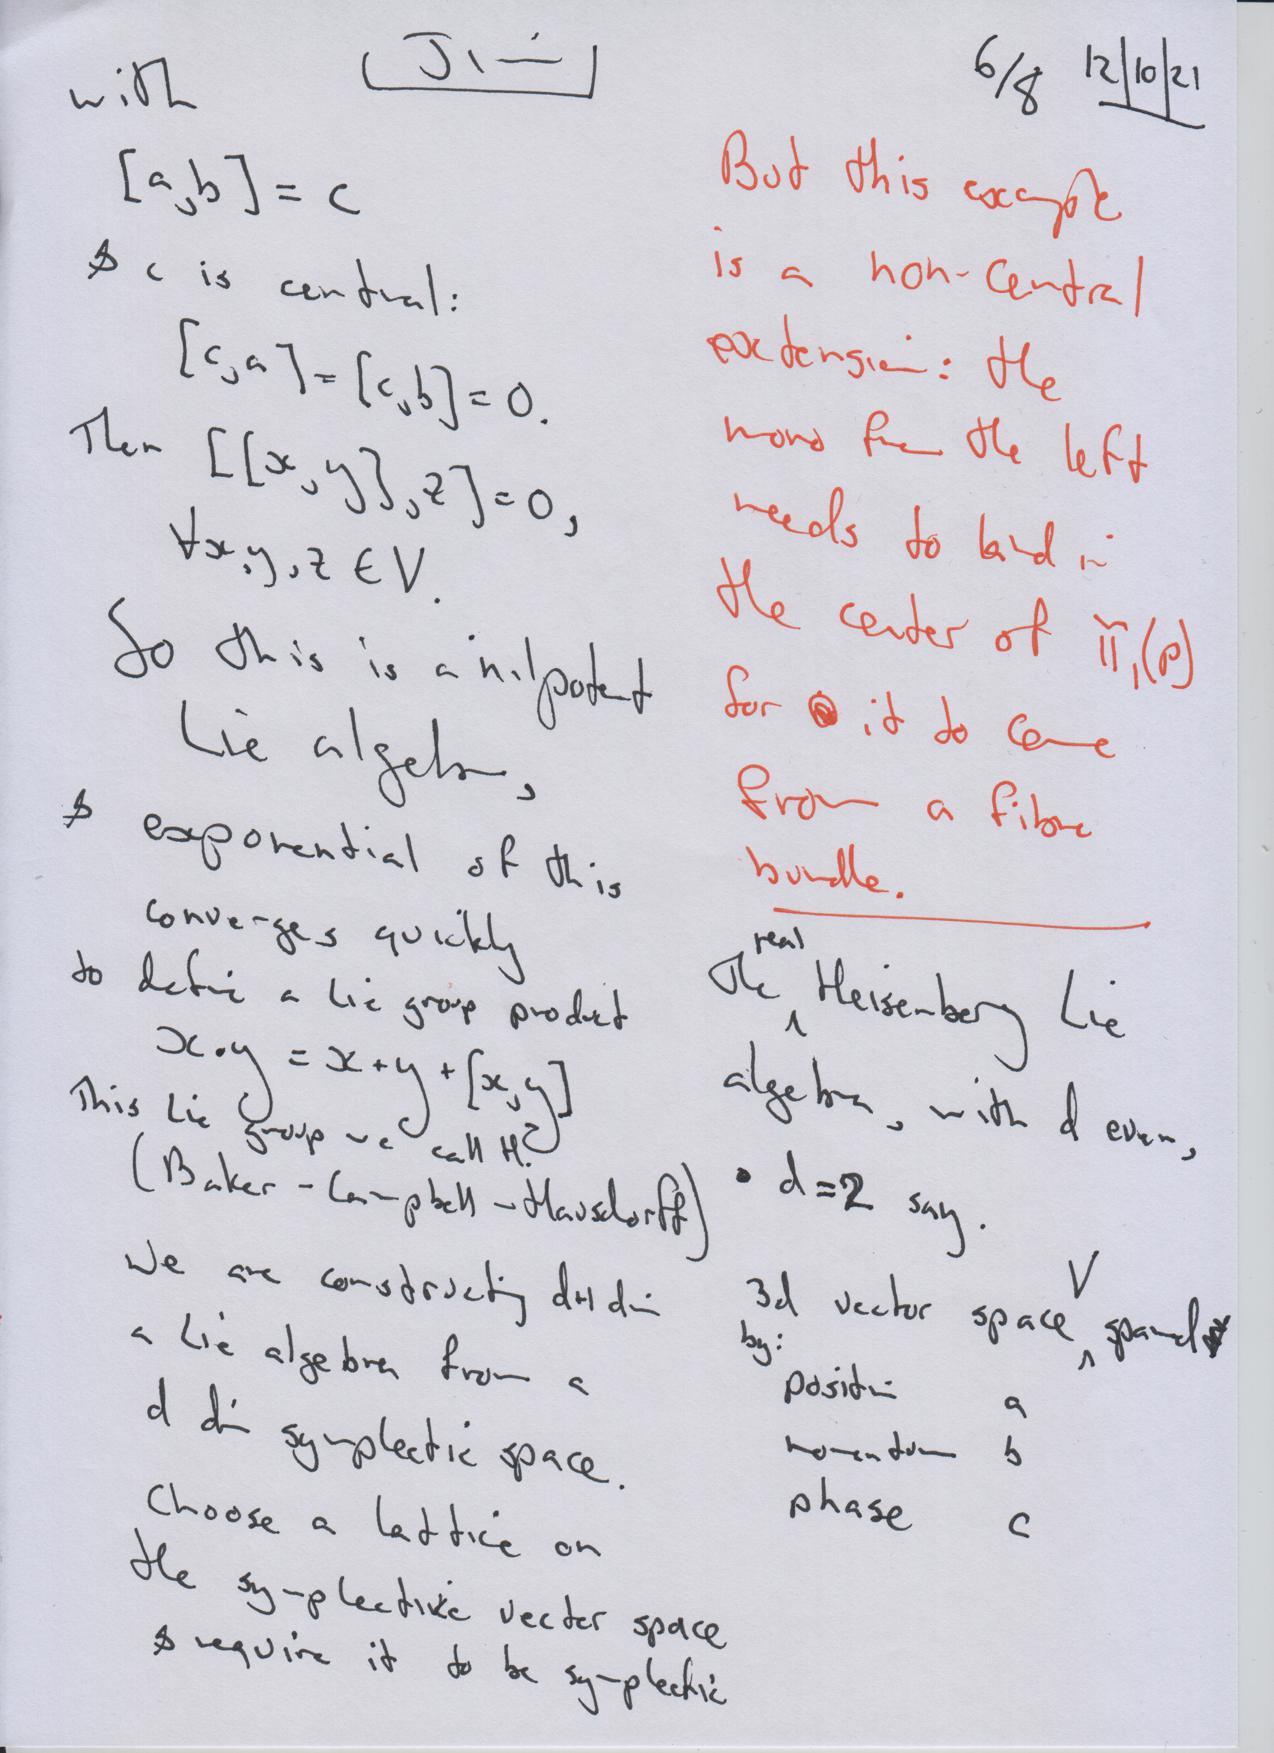 Jim
6/8 12/10/21
with
[a,b] = c
& c is central:
[c,a] = [c,b] = 0.
Then [[x,y],z] = 0,
∀x,y,z ∈ V.
So this is a nilpotent
Lie algebra,
& exponential of this
converges quickly
to define a Lie group product
x.y = x+y+[x,y]
This Lie group we call H.
(Baker-Campbell-Hausdorff)
We are constructing d+1 dim
a Lie algebra from a
d dim symplectic space.
Choose a lattice on
the symplective vector space
& require it to be symplectic
But this example
is a non-central
extension: the
mono from the left
needs to land in
the center of π₁(p)
for it to come
from a fibre
bundle.
The real Heisenberg Lie
algebra, with d even,
• d=2 say.
3d vector space V spanned
by:
position a
momentum b
phase c